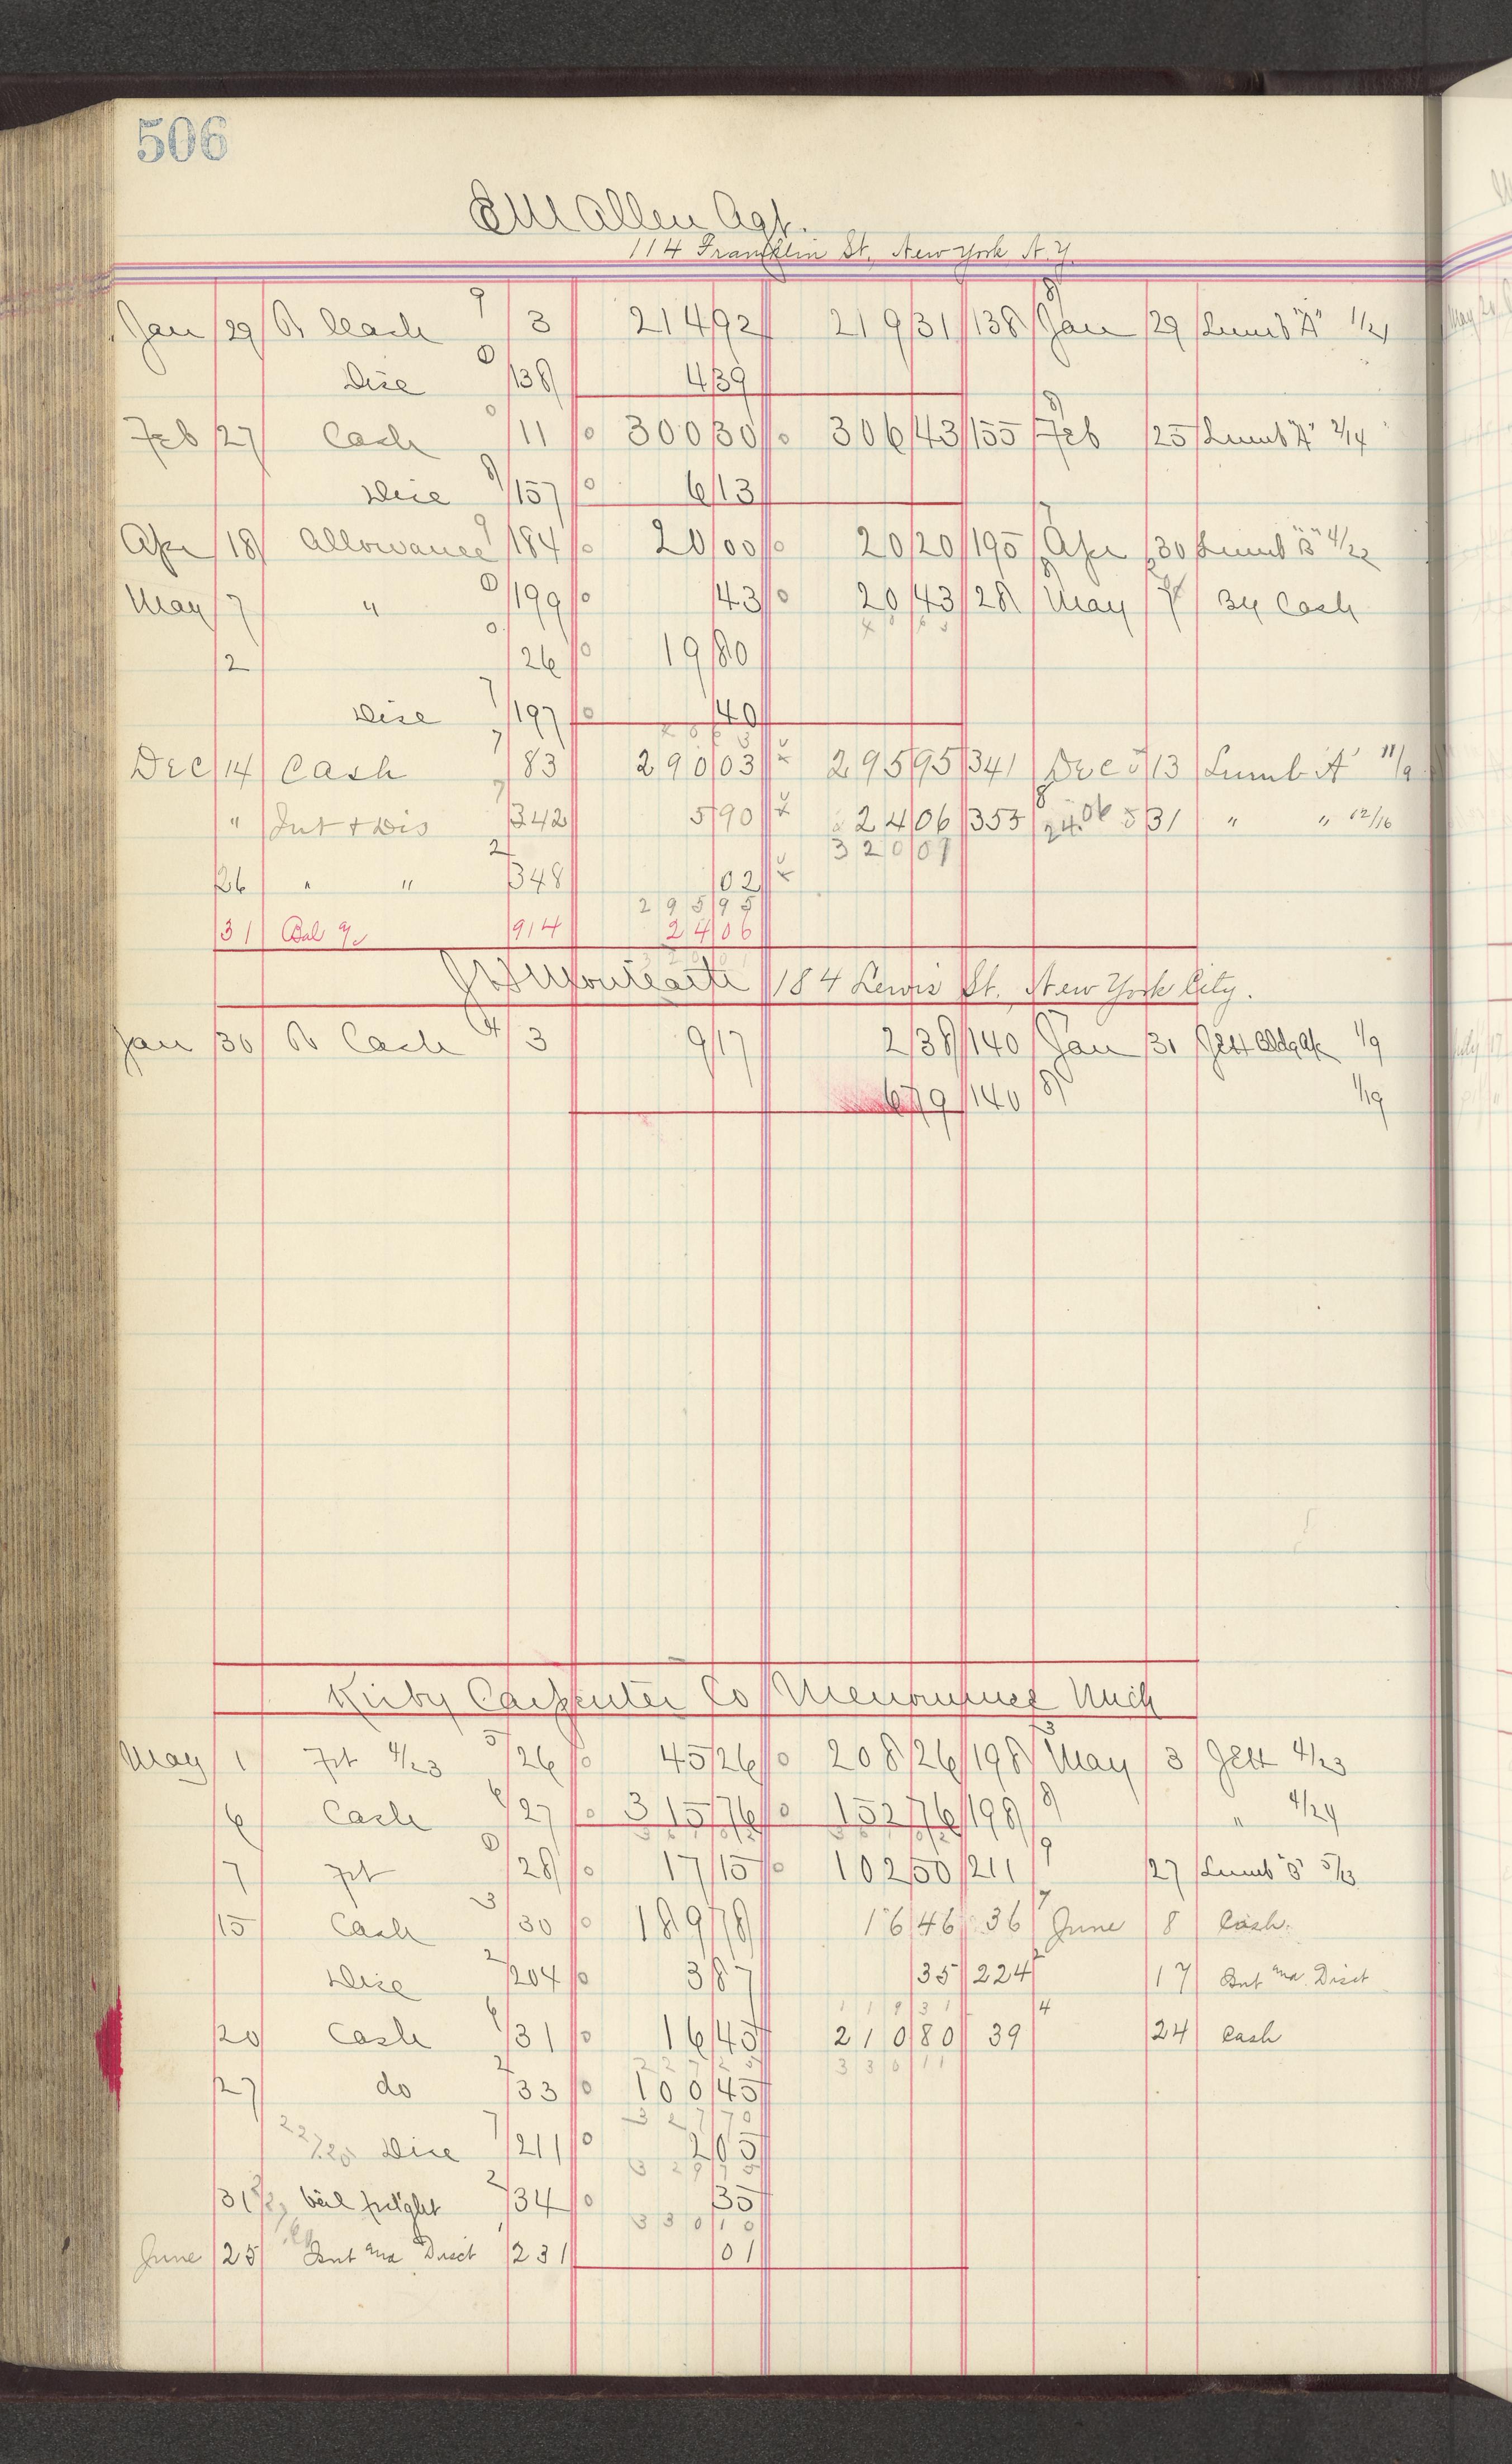 506
E M Allen Agt.
114 Franklin St, New York N.Y.
Jan 29 R Cash 9 3 214 92 219 31 138 8 Jan 29 Lumb "A" 1/21
Disc 0 138 4 39
Feb 27 Cash 0 11 0 300 30 0 306 43 155 8 Feb 25 Lumb "A" 2/14
Disc 8 157 0 6 13
Apr 18 Allowance 9 184 0 20 00 0 20 20 195 7 Apr 30 Lumb "B" 4/22
May 7 " 0 199 0 43 0 20 43 28 8 May 7 By Cash
40 63
2 0 26 0 19 80
Disc 7 197 0 40
40 63
Dec 14 Cash 7 83 290 03 295 95 341 Dec 5 13 Lumb "A" 11/9
" Int & Dis 7 342 5 90 24 06 353 8 24.06 5 31 " " 12/16
320 01
26 " " 2 348 02
295 95
31 Bal 914 24 06
320 01
184 Lewis St, New York City.
Jan 30 R Cash 4 3 9 17 2 38 140 7 Jan 31 1/9
6 79 140 8 1/19
Kirby Carpenter Co Menominee Mich
May 1 Frt 4/23 5 26 0 45 26 0 208 26 198 3 May 3 JEH 4/23
6 Cash 6 27 0 315 76 0 152 76 198 8 " 4/24
361 02 361 02
7 Frt 0 28 0 17 15 0 102 50 211 9 27 Lumb "B" 5/13
15 Cash 3 30 0 189 78 16 46 36 7 June 8 Cash.
Disc 2 204 0 3 87 35 224 2 17 Int and Disct
119 31
20 Cash 6 31 0 16 45 210 80 39 4 24 Cash
227 25 330 11
27 do 2 33 0 100 45
327 70
Disc 7 211 0 2 05
329 75
31 freight 2 34 0 35
330 10
June 25 Int and Disct 1 231 01